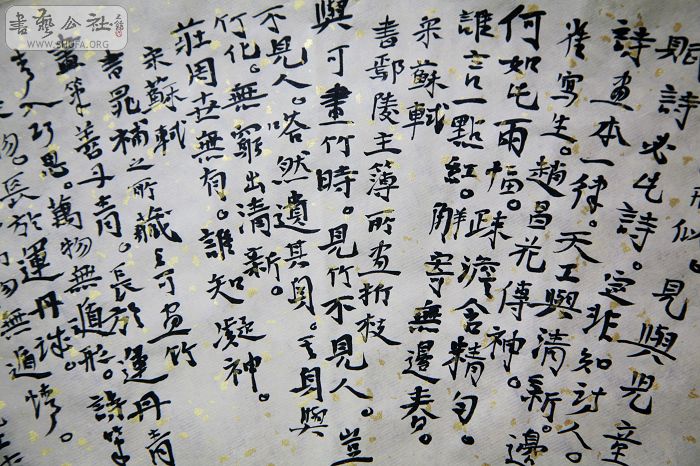 書藝公社
WWW.SHUFA.ORG
似。見與兒童
賦詩必此詩。定非知詩人。
詩畫本一律。天工與清新。邊
雀寫生。趙昌花傳神。
何如此兩幅。疎澹含精勻。
誰言一點紅。解寄無邊春。
宋蘇軾
書鄢陵主簿所畫折枝
與可畫竹時。見竹不見人。豈
不見人。嗒然遺其身。其身與
竹化。無窮出清新。
莊周世無有。誰知凝神。
宋蘇軾
書晁補之所藏與可畫竹
畫筆善丹青。長於運丹青
入巧思。萬物無遁形。詩筆
長於運丹誠。
物無遁情。